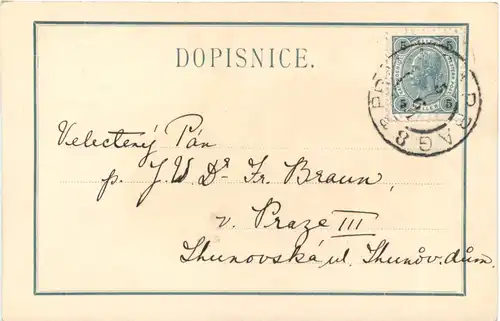 DOPISNICE.
5 5
5 5
PRAG 8
Velectený Pán
p. J.U.Dr Fr. Braun,
v. Praze III
Thunovská ul. Thunův. dům.